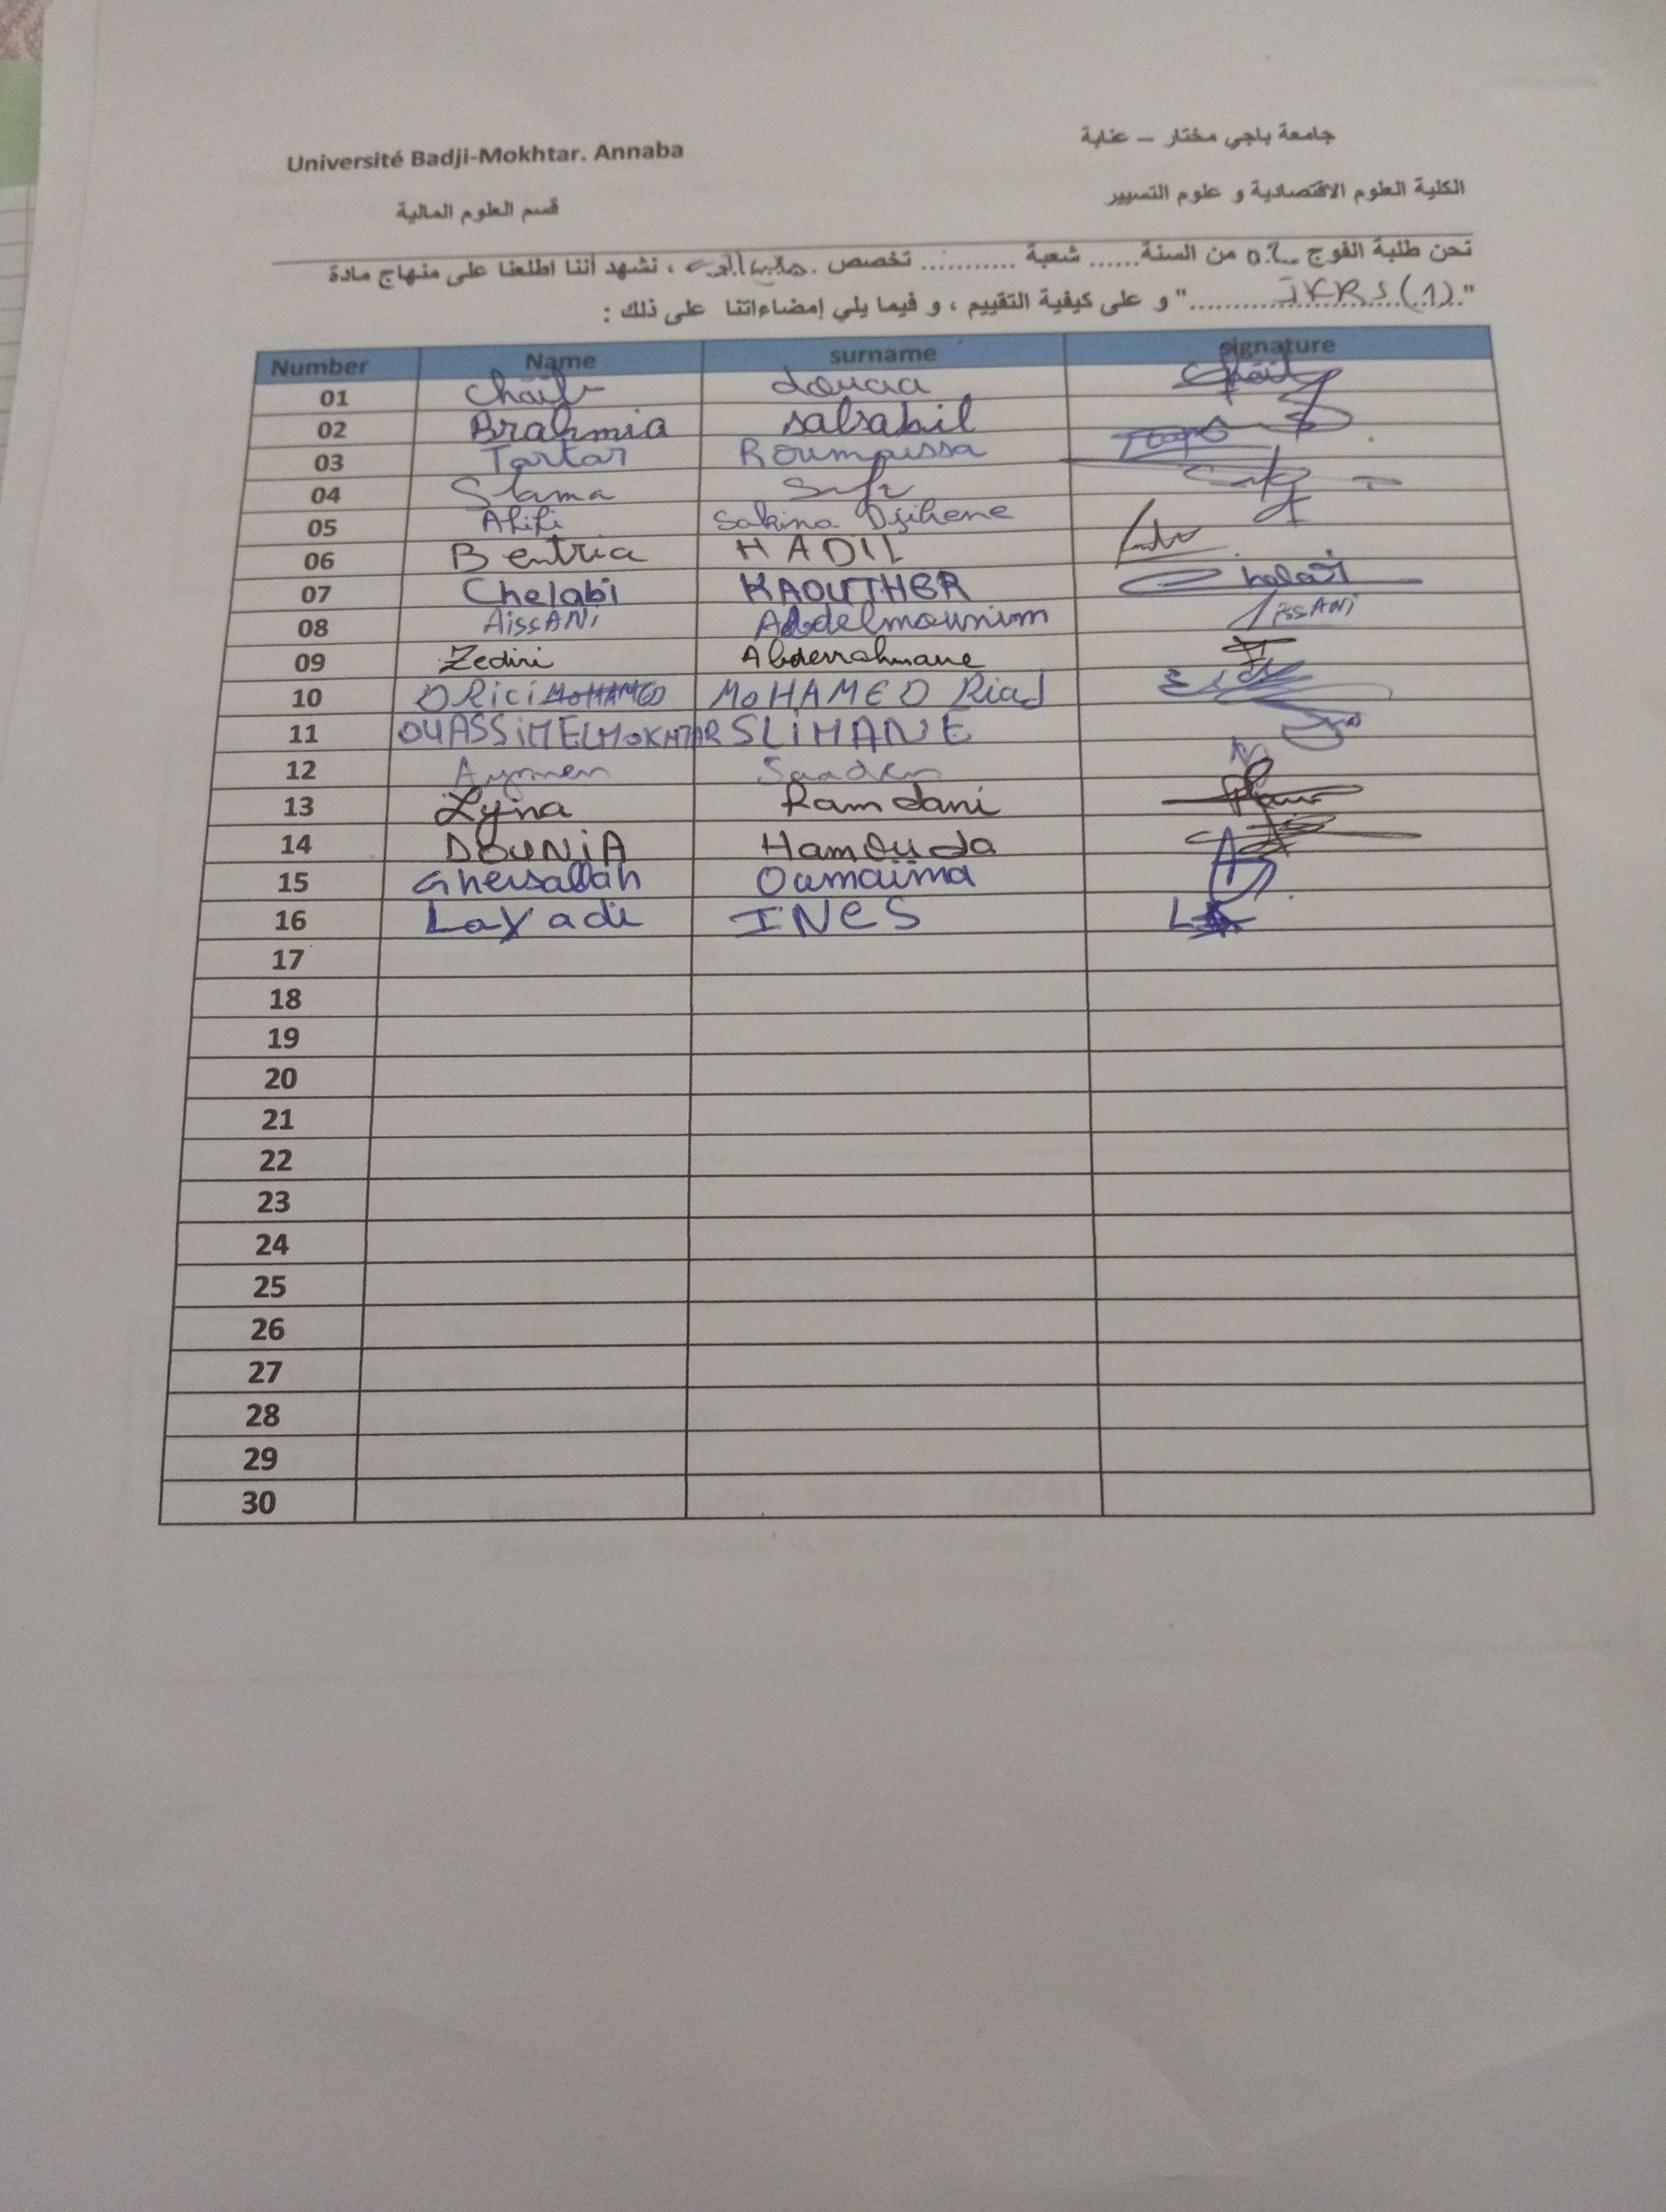 Université Badji-Mokhtar. Annaba
جامعة باجي مختار – عنابة
قسم العلوم المالية
الكلية العلوم الاقتصادية و علوم التسيير
نحن طلبة الفوج 02 من السنة...... شعبة ........... تخصص ، نشهد أننا اطلعنا على منهاج مادة
"......................" و على كيفية التقييم ، و فيما يلي إمضاءاتنا على ذلك :
Number Name surname signature
01 Chaib douaa
02 Brahmia salsabil
03 Tartar Roumaissa
04 Slama
05 Afifi Sakina Djihene
06 Bentria HADIL
07 Chelabi KAOUTHER
08 AissANi Abdelmounim AissANi
09 Zediri Abderrahmane
10 DRici MOHAMED MOHAMED Riad
11 OUASSiMELMOKHTAR SLiMANE
12 Aymen
13 Lyna Ramdani
14 DOUNiA Hamouda
15 Ghersallah Oumaima
16 Layadi INeS
17
18
19
20
21
22
23
24
25
26
27
28
29
30